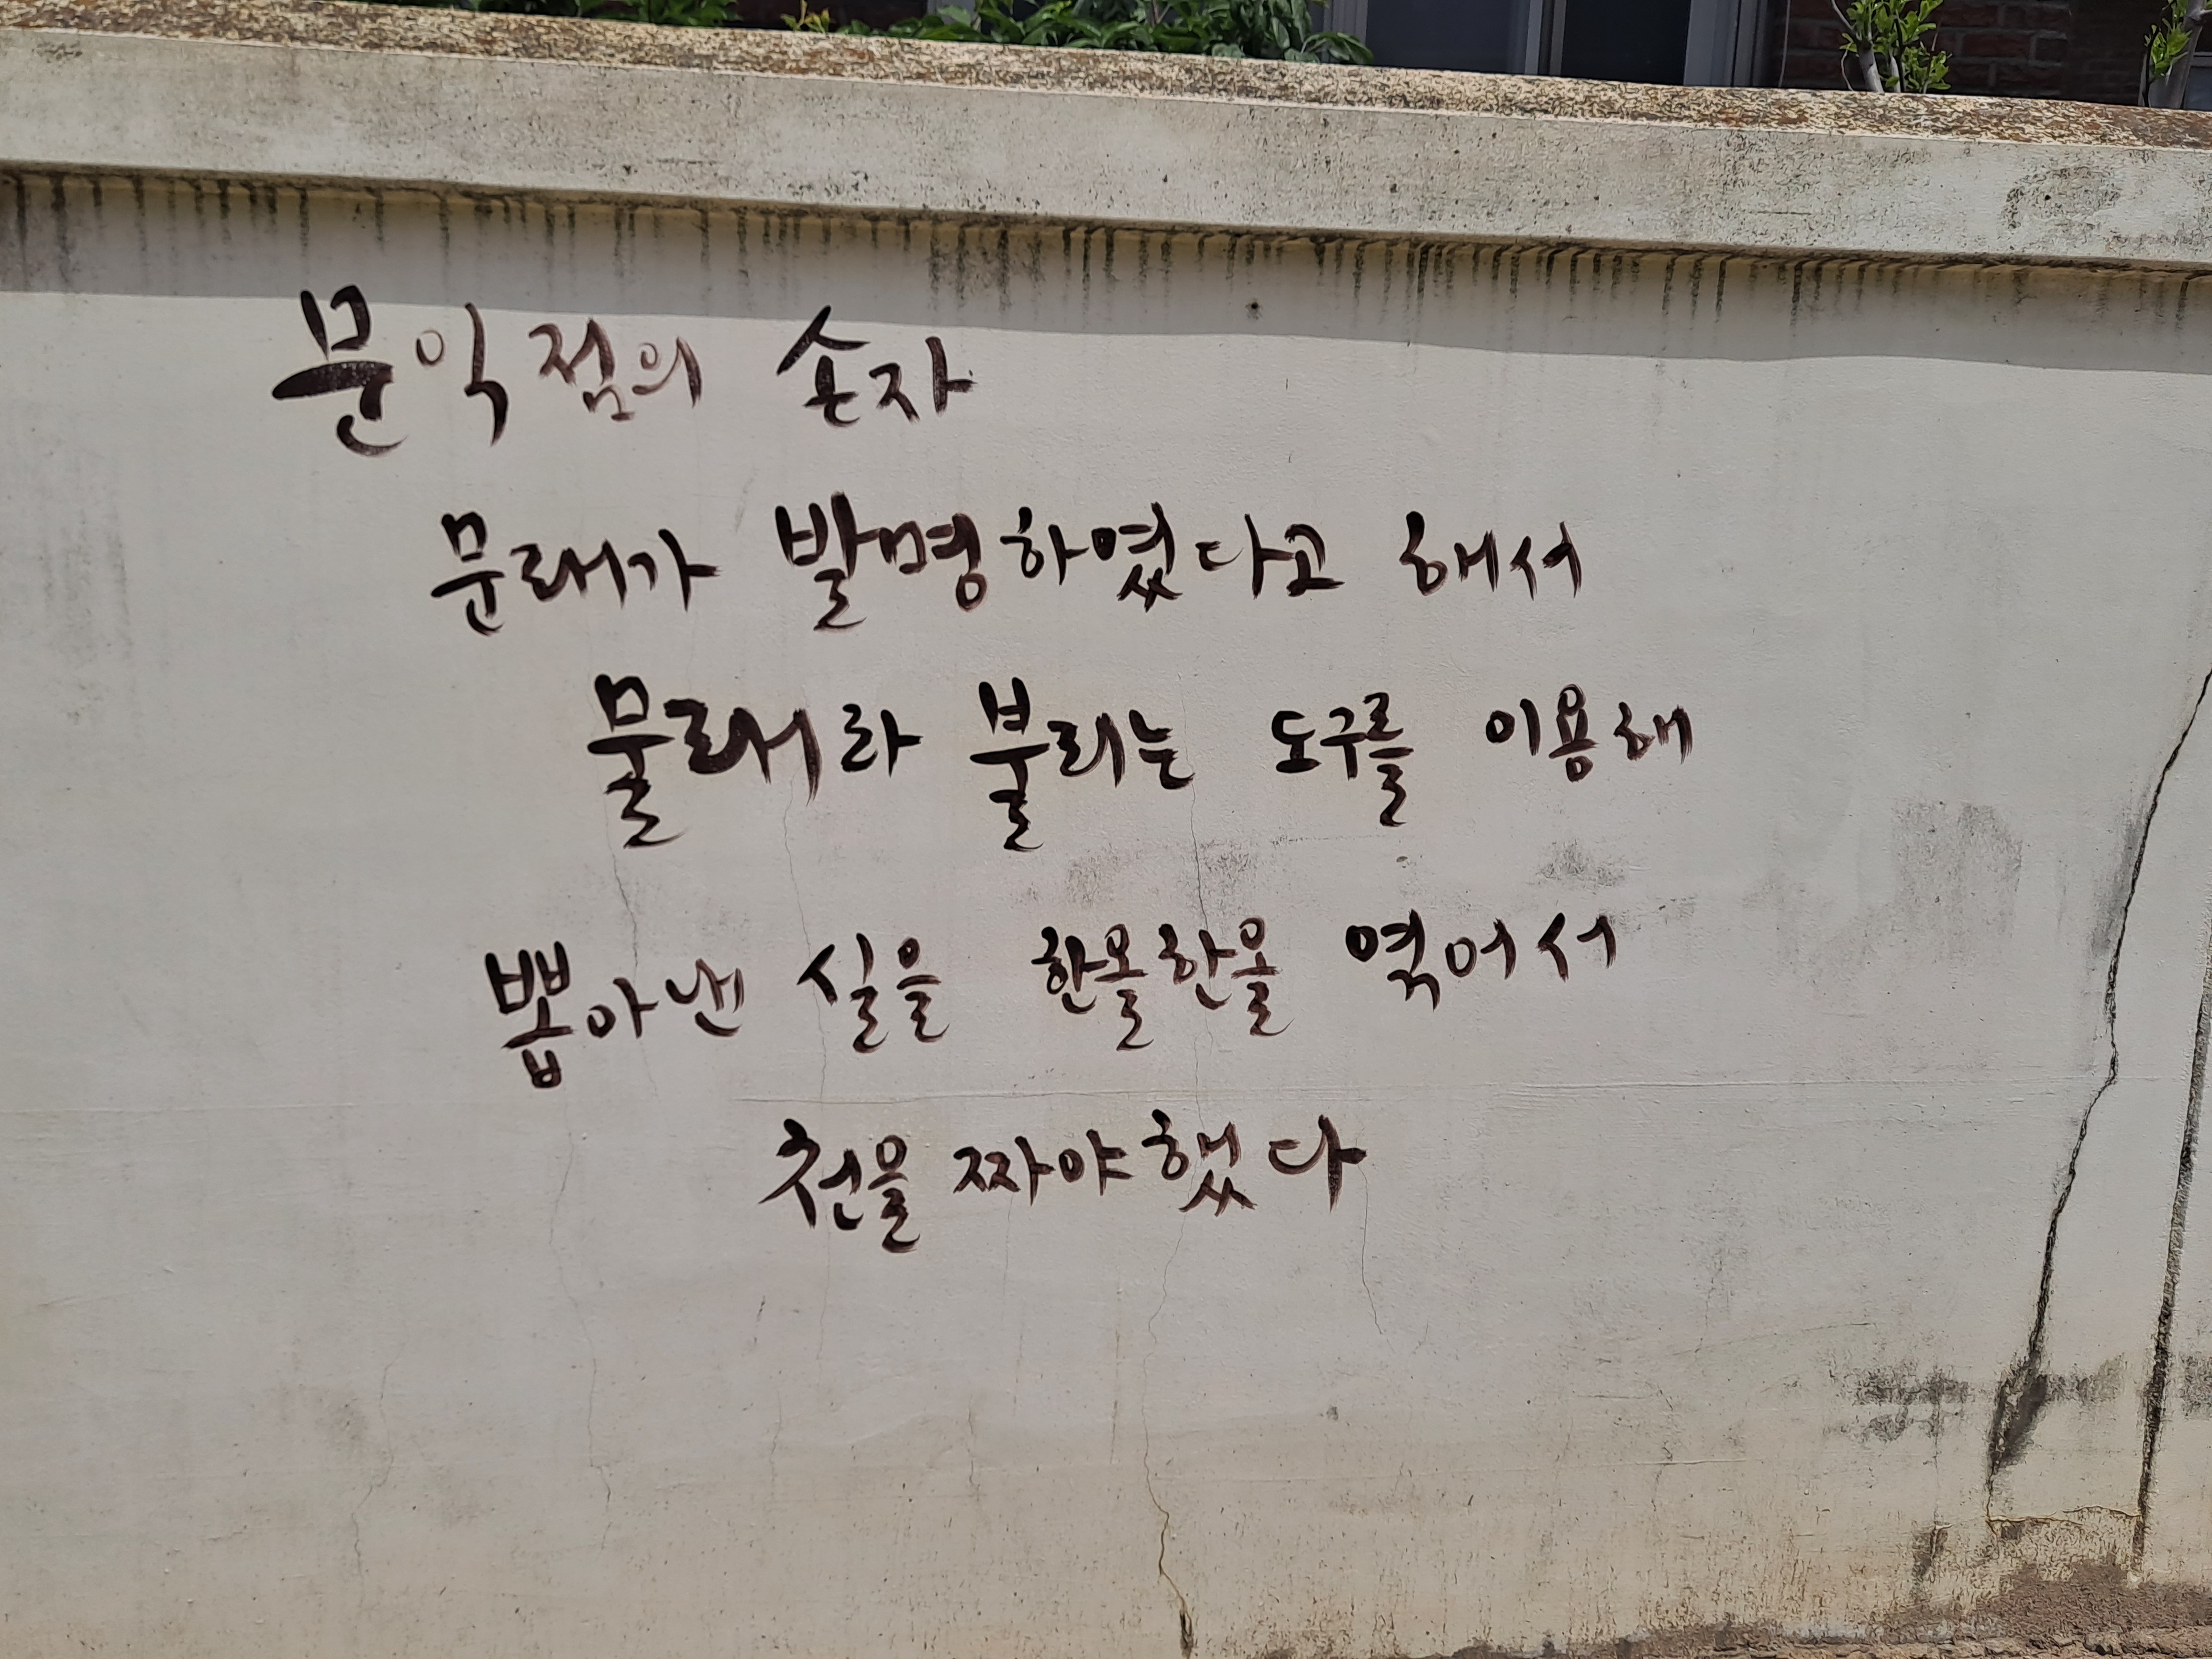 문익점의 손자
문래가 발명하였다고 해서
물래라 불리는 도구를 이용해
뽑아낸 실을 한올한올 엮어서
천을 짜야했다